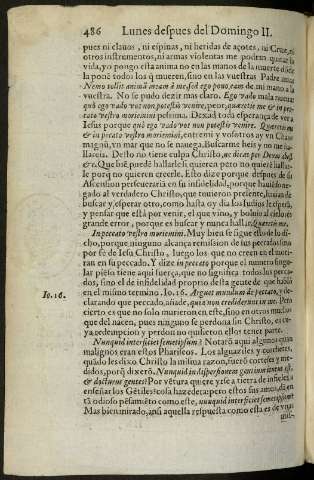 486 Lunes despues del Domingo II.
pues ni clauos, ni espinas, ni heridas de açotes, ni Cruz, ni
otros instrumentos, ni armas violentas me podran quitar la
vida, yo pongo esta anima no en las manos de la muerte dõde
la ponẽ todos los q̃ mueren, sino en las vuestras Padre mio.
Nemo tollit animã meam à me, sed ego pono eam de mi mano a la
vuestra. No se pudo dezir mas claro. Ego vado mala nueua:
quò ego vado vos non potestis venire, peor, quæretis me & in pec-
cato vestro moriemini pessima. Dexad toda esperança de ver a
Iesus porque quò ego vado vos non potestis venire. Quæretis me
& in peccato vestro moriemini, entremi y vosotros ay vn Chaos
magnũ, vn mar que no se nauega. Buscarme heis y no me ha-
llareis. Desto no tiene culpa Christo,
&c. Que biẽ puede hallarle si quieren pero no quierẽ hallar-
le porq̃ no quieren creerle. Esto dize porque despues de su
Ascension perseuerarã en su infidelidad, porque hauiẽdo ne-
gado al verdadero Christo, que tuuieron presente, hauian de
buscar y esperar otro, como hasta oy dia los Iudios le esperã,
y pensar que está por venir, el que vino, y boluio al cielo: es
grande error, porque es buscar y nunca hallar. Quæretis me.
In peccato vestro moriemini. Muy bien se sigue esto de lo di-
cho, porque ninguno alcança remission de sus peccados sino
por fè de Iesu Christo, luego los que no creen en el mori-
ran en su peccado. Y dize in peccato porque el numero singu-
lar piẽso tiene aqui fuerça, que no significa todos los pecca-
dos, sino el de infidelidad proprio desta gente de que habla
en el mismo termino, Io. 16. Arguet mundum de peccato, y de-
clarando que peccado, añade, quia non crediderunt in me. Pero
cierto es que no solo murieron en este, sino en otros muchos
que del nacen, pues ninguno se perdona sin Christo, en cu-
ya redempcion y perdon no quisieron ellos tener parte.
Io. 16.
Nunquid interficiet semetipsum? Notarõ aqui algunos quan
malignos eran estos Phariseos. Los alguaziles y corchetes,
quãdo les dixo Christo la misma razon, fuerõ corteses y me-
didos, porq̃ dixerõ. Nunquid in dispersionem gentium iturus est,
& docturus gentes? Por vẽtura quiere yrse a tierra de infieles, a
enseñar los Gẽtiles? cosa hazedera: pero estos sus amos, dã en
tã odioso pẽsamiẽto como este, nunquid interficiet semetipsum?
Mas bien mirado, aun aquella respuesta como esta es de vnas